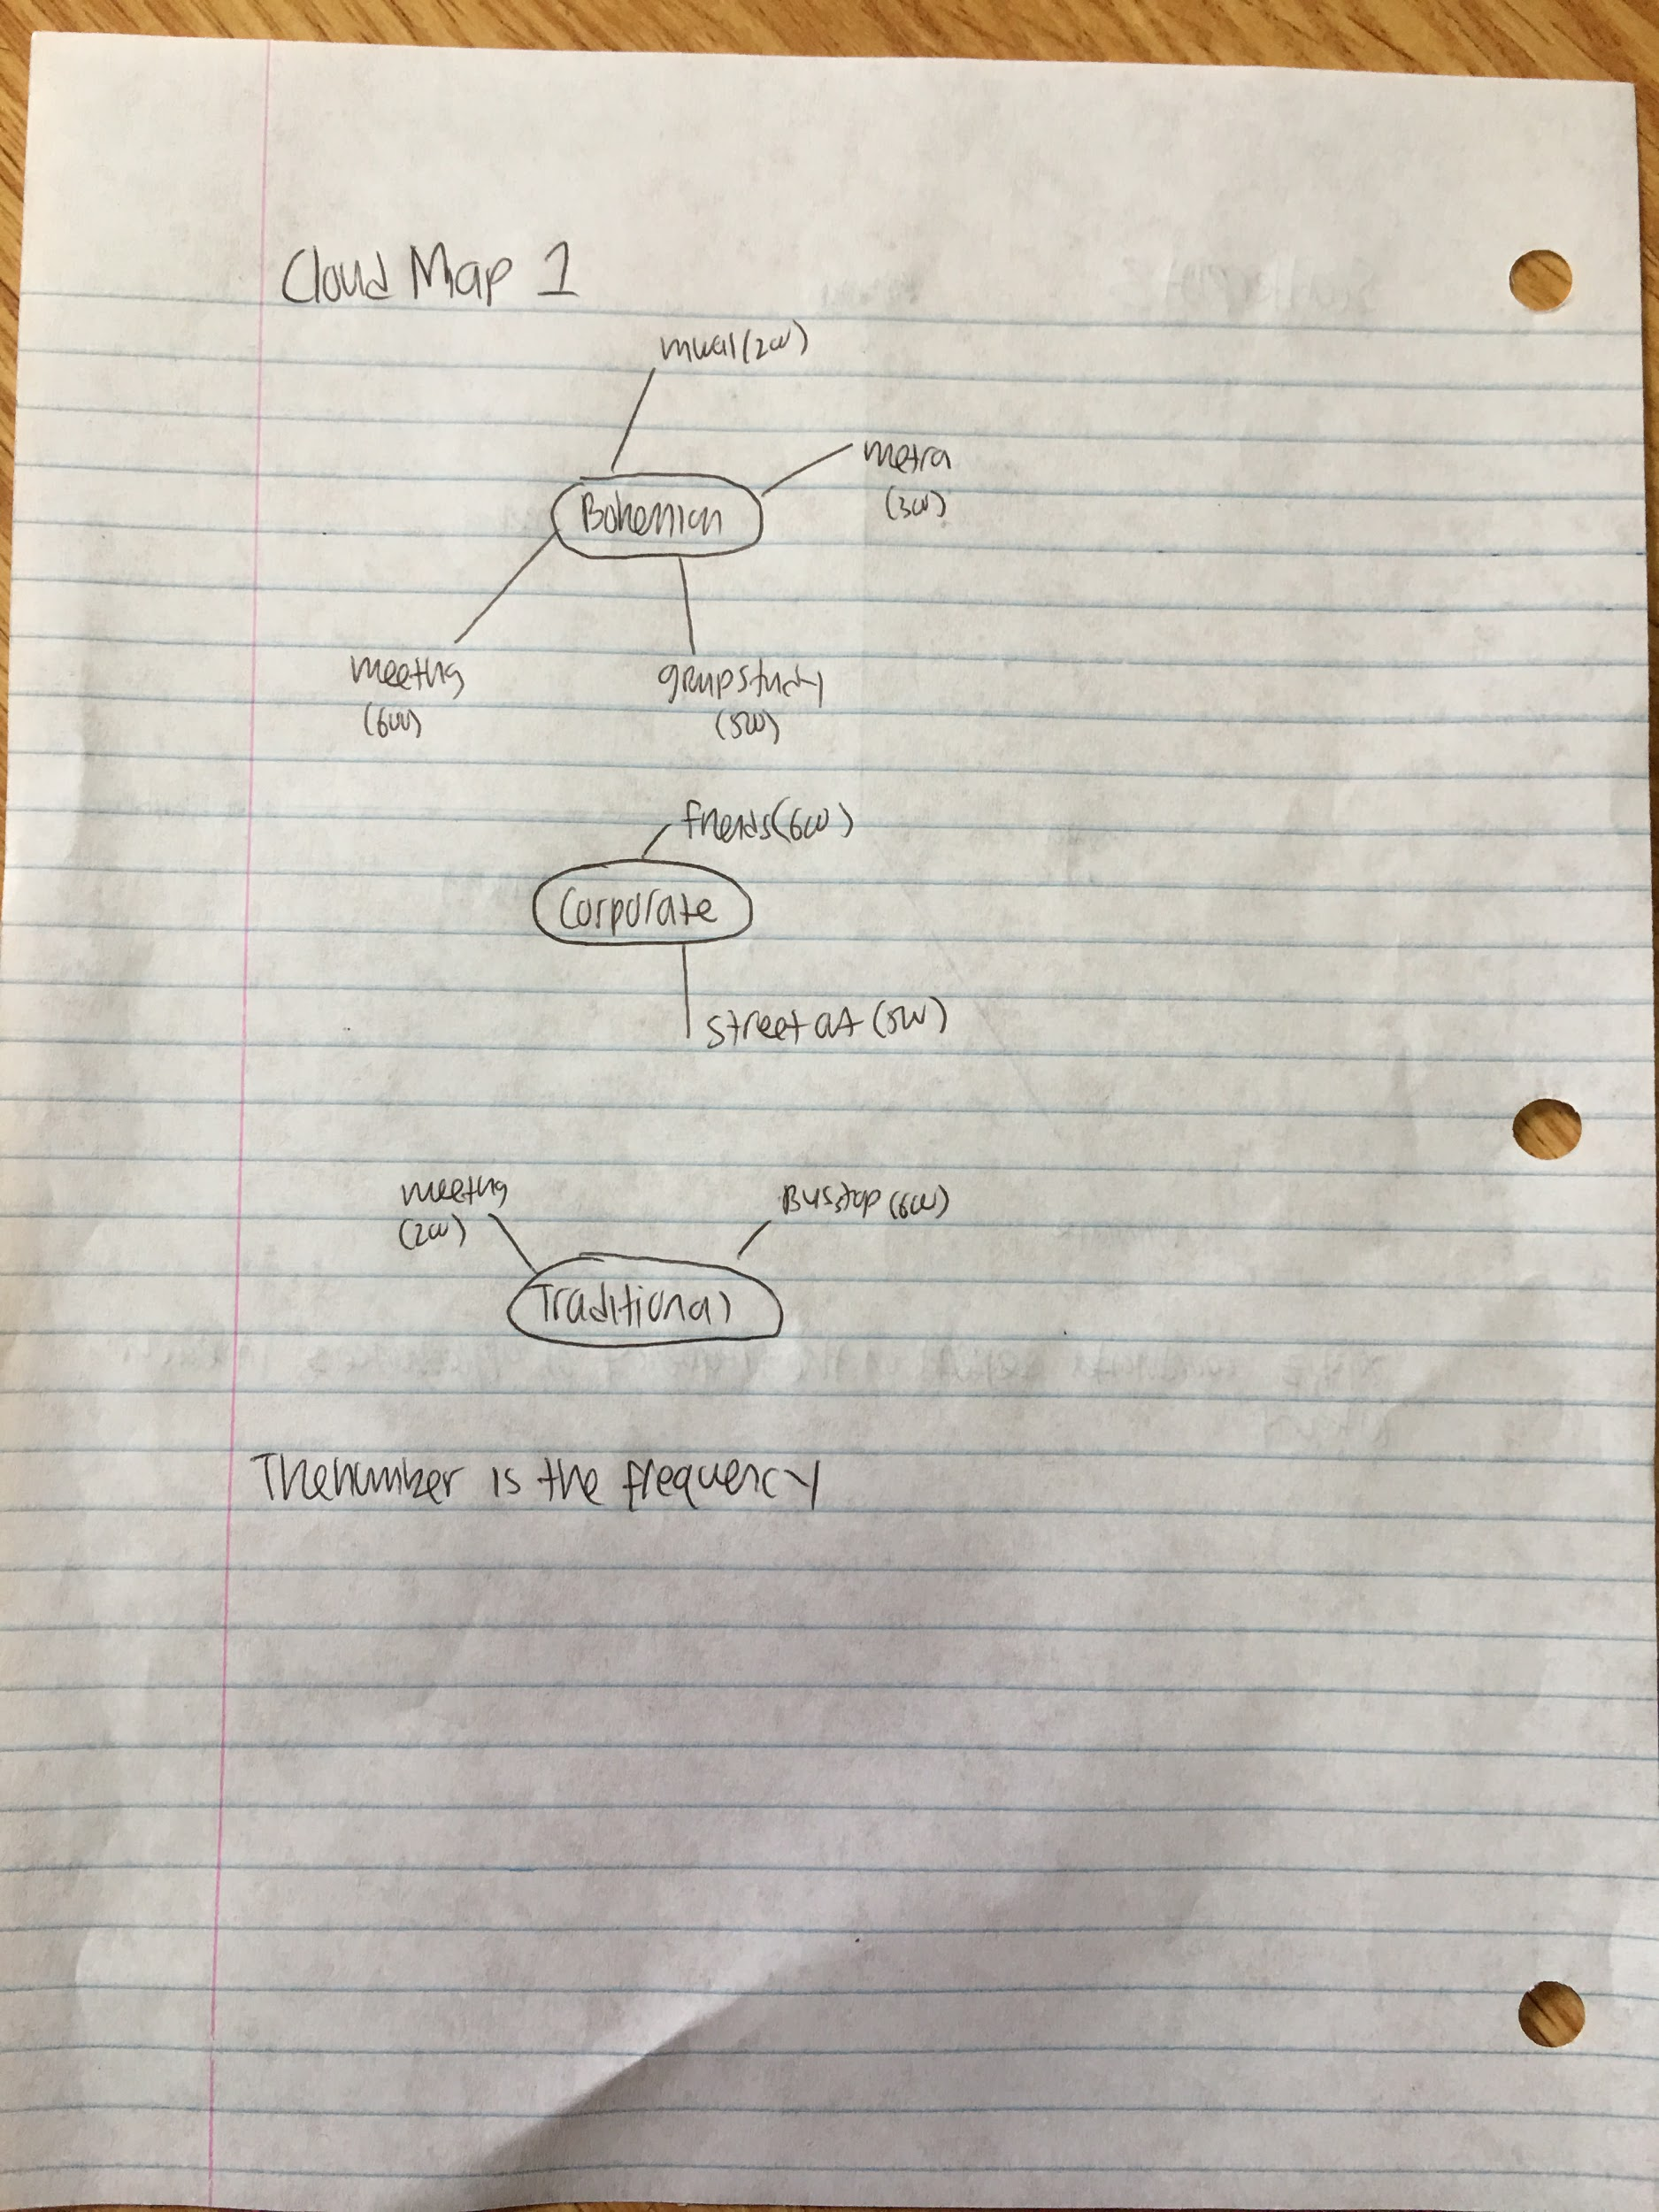 Cloud Map 1
mural (2w)
metra
(3w)
Bohemian
meeting
(6w)
group study
(5w)
friends (6w)
Corporate
street art (5w)
meeting
(2w)
Bus stop (6w)
Traditional
The number is the frequency